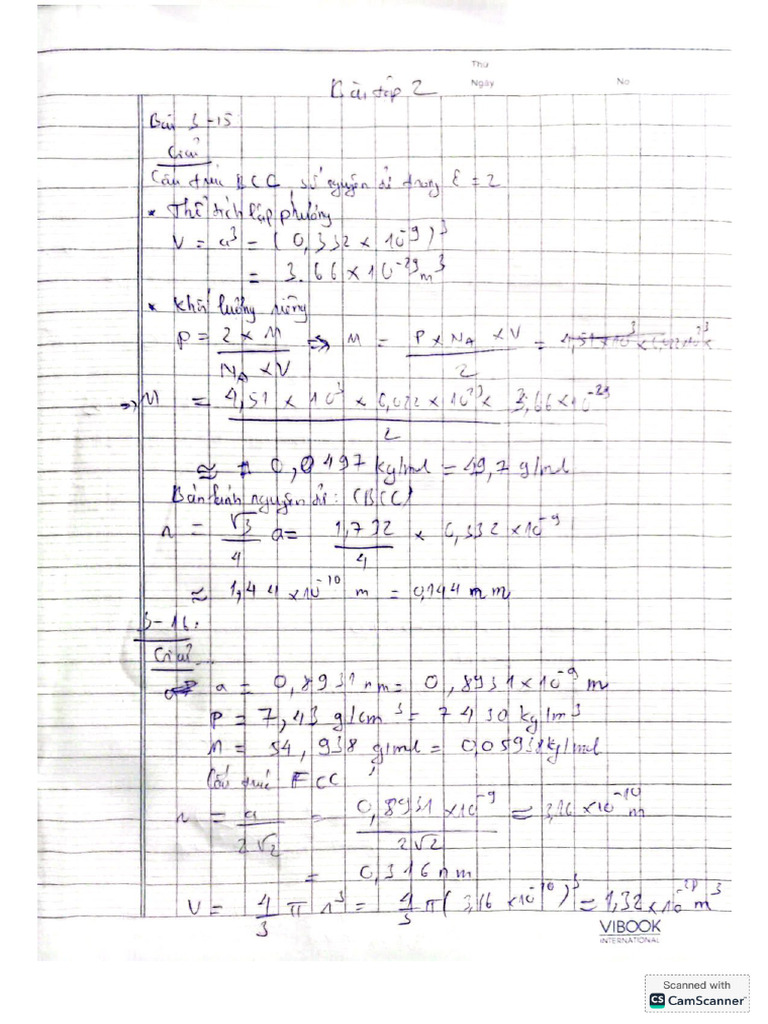 Thứ
Ngày No
Bài tập 2
Bài 3-15
Giải
Cấu trúc BCC, số nguyên tử trong ε = 2
* Thể tích lập phương
V = a³ = (0,332 × 10⁻⁹)³
= 3.66 × 10⁻²⁹ m³
* Khối lượng riêng
P = (2 × M)/(N_A × V) => M = (P × N_A × V)/2 =
=> M = (4,51 × 10³ × 6,022 × 10²³ × 3,66 × 10⁻²⁹)/2
≈ 0,0497 kg/mol = 49,7 g/mol
Bán kính nguyên tử: (BCC)
r = √3/4 a = 1,732/4 × 0,332 × 10⁻⁹
≈ 1,44 × 10⁻¹⁰ m = 0,144 nm
3-16:
Giải
a = 0,8931 nm = 0,8931 × 10⁻⁹ m
P = 7,43 g/cm³ = 7430 kg/m³
M = 54,938 g/mol = 0,05938 kg/mol
Cấu trúc FCC
r = a/(2√2) = (0,8931 × 10⁻⁹)/(2√2) = 3,16 × 10⁻¹⁰ m
= 0,316 nm
V = 4/3 π r³ = 4/3 π (3,16 × 10⁻¹⁰)³ = 1,32 × 10⁻²⁸ m³
VIBOOK
INTERNATIONAL
Scanned with
CS CamScanner